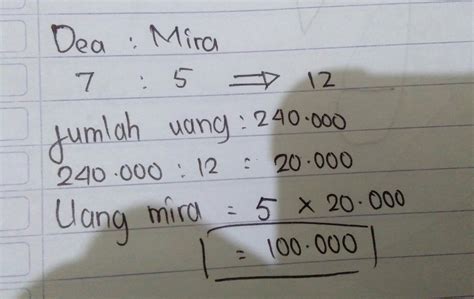 Dea : Mira
7 : 5 ⇒ 12
Jumlah uang : 240.000
240.000 : 12 = 20.000
Uang mira = 5 × 20.000
= 100.000